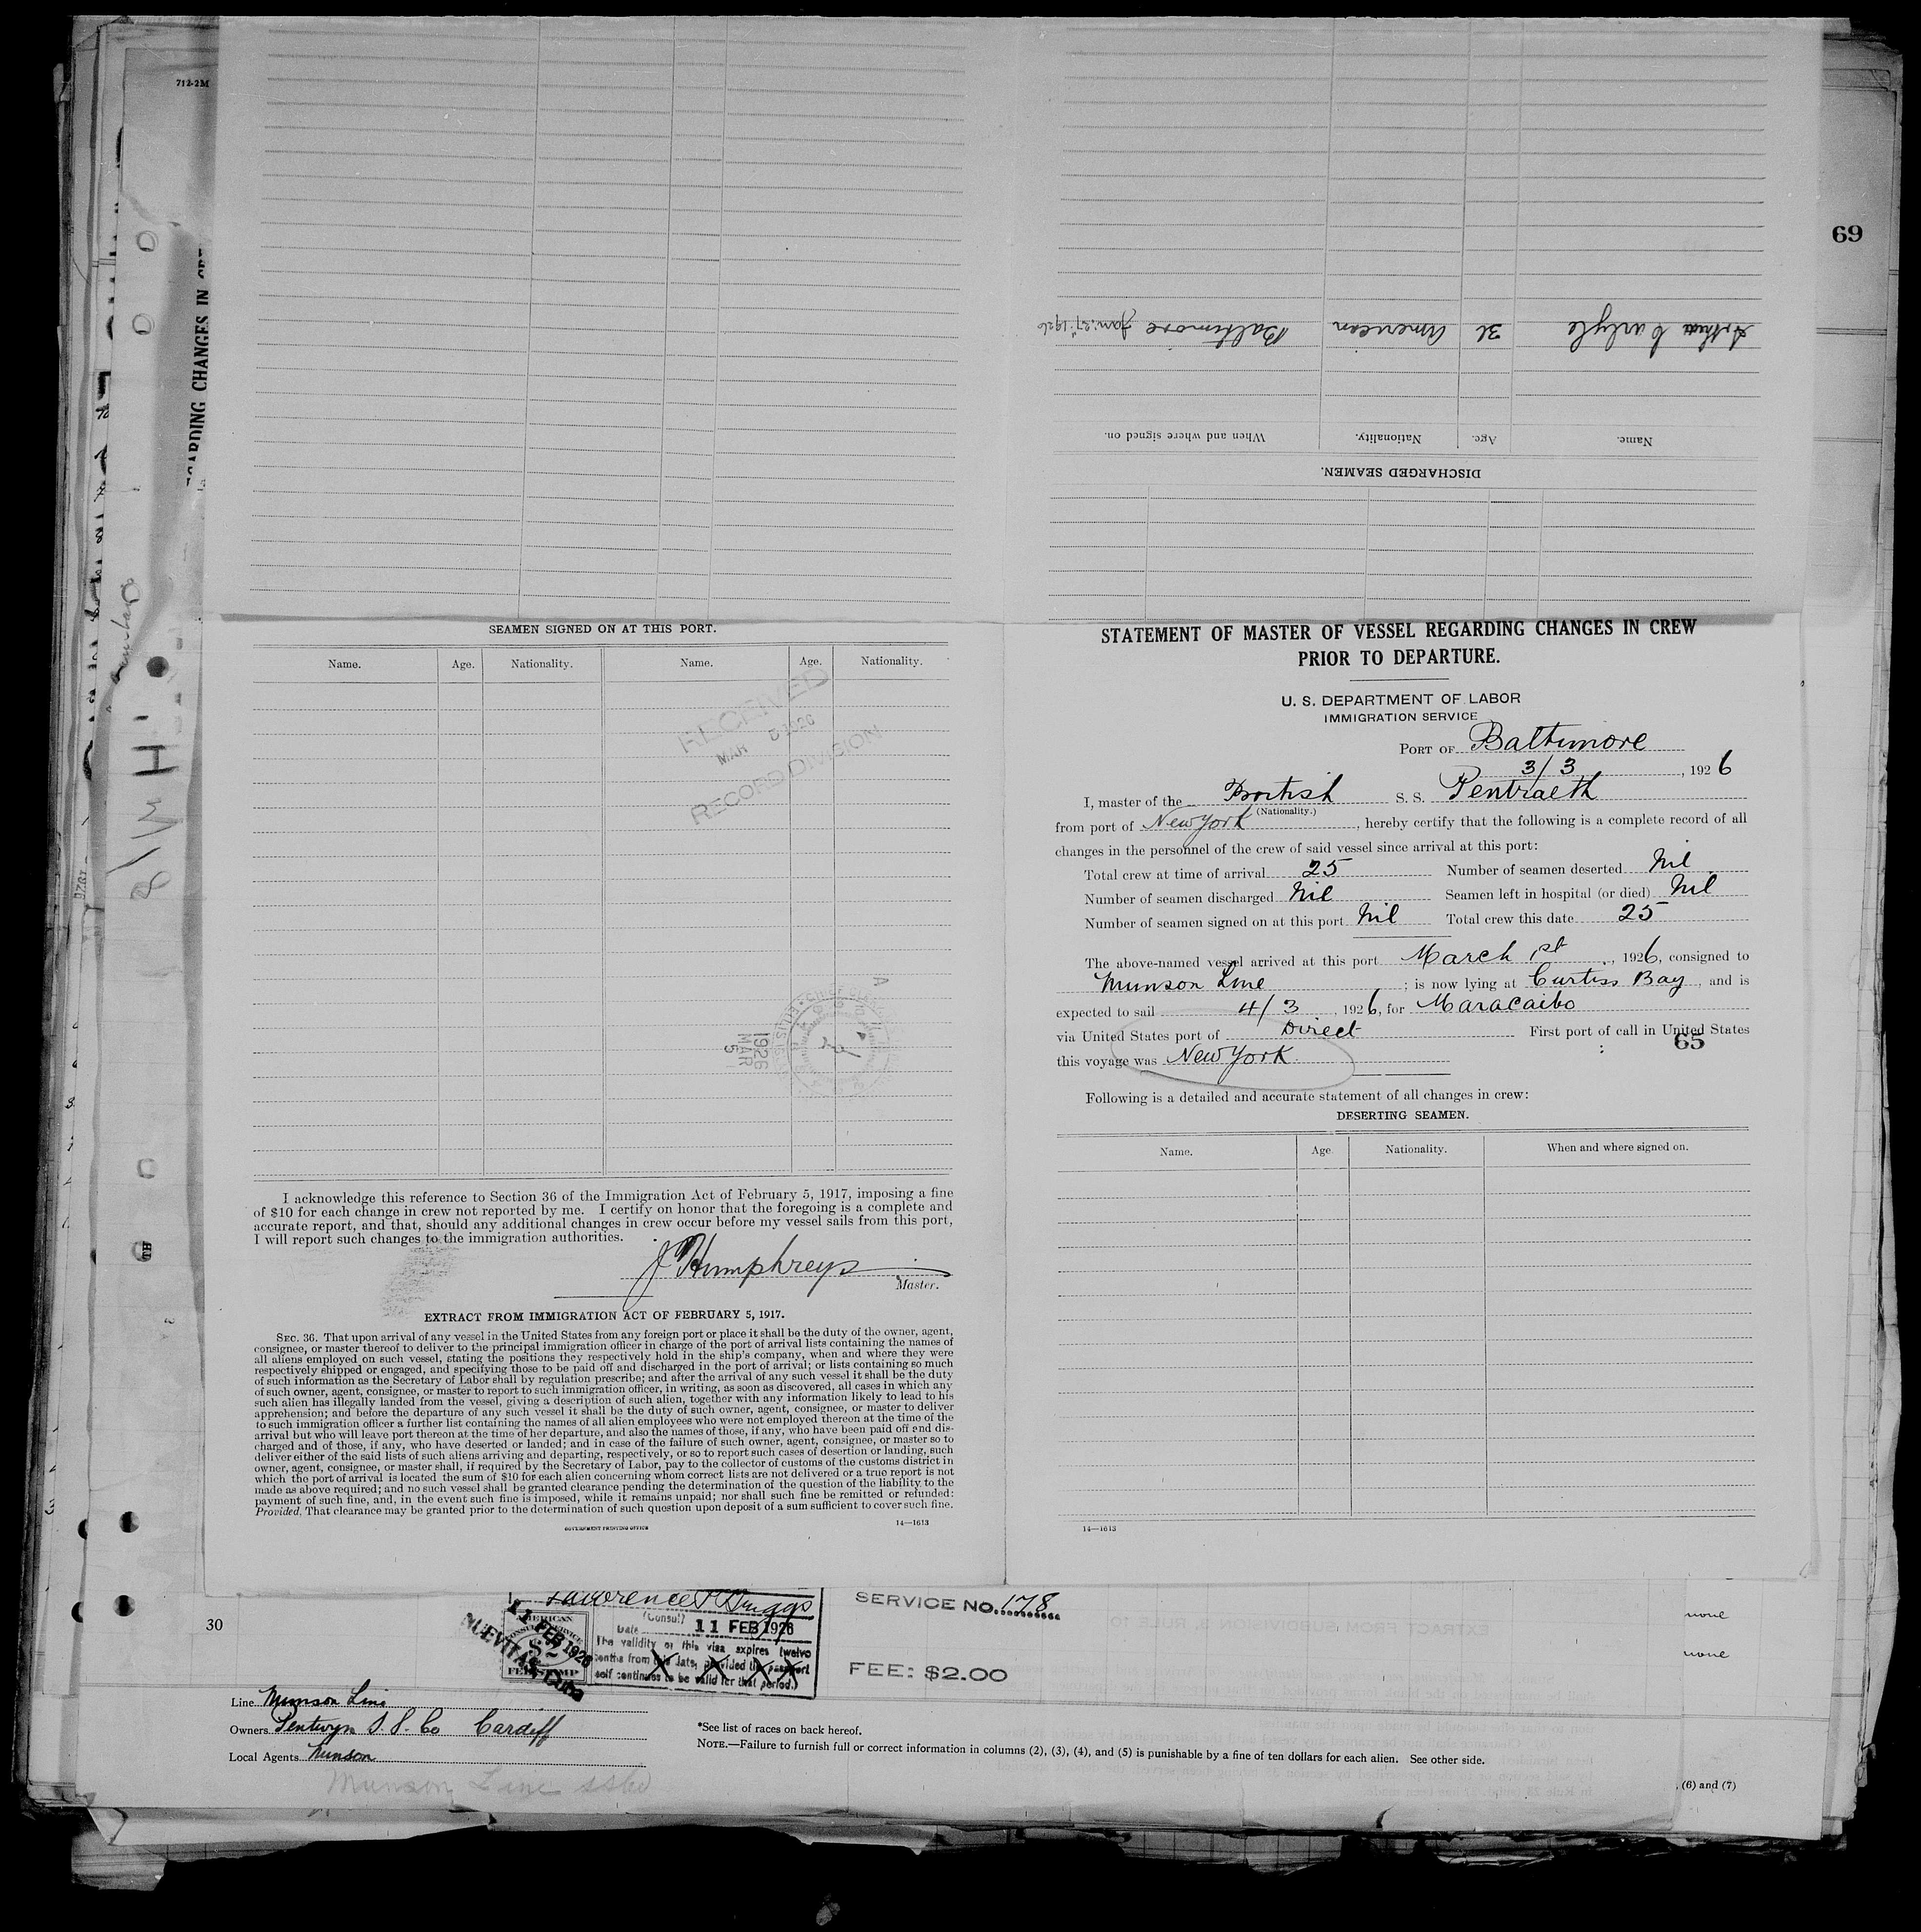 712-2M
69
Arthur Carlyle 36 American Baltimore Jan: 27" 1926
Name. Age. Nationality. When and where signed on.
DISCHARGED SEAMEN.
SEAMEN SIGNED ON AT THIS PORT.
Name. Age. Nationality. Name. Age. Nationality.
RECEIVED
MAR 5 1926
RECORD DIVISION
1926
MAR
5
I acknowledge this reference to Section 36 of the Immigration Act of February 5, 1917, imposing a fine
of $10 for each change in crew not reported by me. I certify on honor that the foregoing is a complete and
accurate report, and that, should any additional changes in crew occur before my vessel sails from this port,
I will report such changes to the immigration authorities.
J Humphreys
Master.
EXTRACT FROM IMMIGRATION ACT OF FEBRUARY 5, 1917.
SEC. 36. That upon arrival of any vessel in the United States from any foreign port or place it shall be the duty of the owner, agent,
consignee, or master thereof to deliver to the principal immigration officer in charge of the port of arrival lists containing the names of
all aliens employed on such vessel, stating the positions they respectively hold in the ship's company, when and where they were
respectively shipped or engaged, and specifying those to be paid off and discharged in the port of arrival; or lists containing so much
of such information as the Secretary of Labor shall by regulation prescribe; and after the arrival of any such vessel it shall be the duty
of such owner, agent, consignee, or master to report to such immigration officer, in writing, as soon as discovered, all cases in which any
such alien has illegally landed from the vessel, giving a description of such alien, together with any information likely to lead to his
apprehension; and before the departure of any such vessel it shall be the duty of such owner, agent, consignee, or master to deliver
to such immigration officer a further list containing the names of all alien employees who were not employed thereon at the time of the
arrival but who will leave port thereon at the time of her departure, and also the names of those, if any, who have been paid off and dis-
charged and of those, if any, who have deserted or landed; and in case of the failure of such owner, agent, consignee, or master so to
deliver either of the said lists of such aliens arriving and departing, respectively, or so to report such cases of desertion or landing, such
owner, agent, consignee, or master shall, if required by the Secretary of Labor, pay to the collector of customs of the customs district in
which the port of arrival is located the sum of $10 for each alien concerning whom correct lists are not delivered or a true report is not
made as above required; and no such vessel shall be granted clearance pending the determination of the question of the liability to the
payment of such fine, and, in the event such fine is imposed, while it remains unpaid; nor shall such fine be remitted or refunded:
Provided, That clearance may be granted prior to the determination of such question upon deposit of a sum sufficient to cover such fine.
GOVERNMENT PRINTING OFFICE 14—1613
STATEMENT OF MASTER OF VESSEL REGARDING CHANGES IN CREW
PRIOR TO DEPARTURE.
U. S. DEPARTMENT OF LABOR
IMMIGRATION SERVICE
PORT OF Baltimore
3/3, 1926
I, master of the British S. S. Pentraeth
(Nationality.)
from port of New York, hereby certify that the following is a complete record of all
changes in the personnel of the crew of said vessel since arrival at this port:
Total crew at time of arrival 25 Number of seamen deserted Nil
Number of seamen discharged Nil Seamen left in hospital (or died) Nil
Number of seamen signed on at this port Nil Total crew this date 25
The above-named vessel arrived at this port March 1st, 1926, consigned to
Munson Line; is now lying at Curtiss Bay, and is
expected to sail 4/3, 1926, for Maracaibo
via United States port of Direct First port of call in United States
65
this voyage was New York
Following is a detailed and accurate statement of all changes in crew:
DESERTING SEAMEN.
Name. Age. Nationality. When and where signed on.
14—1613
30
Lawrence P Briggs
(Consul)
Date 11 FEB 1926
The validity of this visa expires twelve
months from this date, provided the passport
self continues to be valid for that period.)
AMERICAN
CONSULAR SERVICE
$2
FEE STAMP
11 FEB 1926
NUEVITAS, Cuba
SERVICE NO. 178
FEE: $2.00
none
none
Line Munson Line
Owners Pentwyn S. S. Co Cardiff
Local Agents Munson
Munson Line
*See list of races on back hereof.
NOTE.—Failure to furnish full or correct information in columns (2), (3), (4), and (5) is punishable by a fine of ten dollars for each alien. See other side.
, (6) and (7)